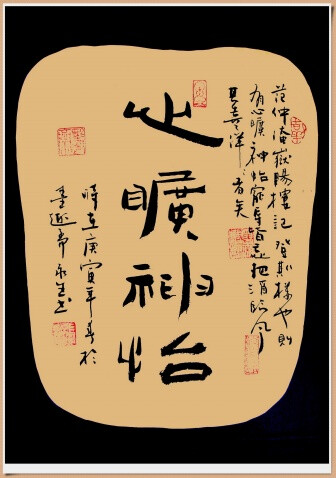 范仲淹嶽陽樓記登斯樓也則
有心曠神怡寵辱皆忘把酒臨風
其喜洋洋者矣
心曠神怡
時在庚寅年春於